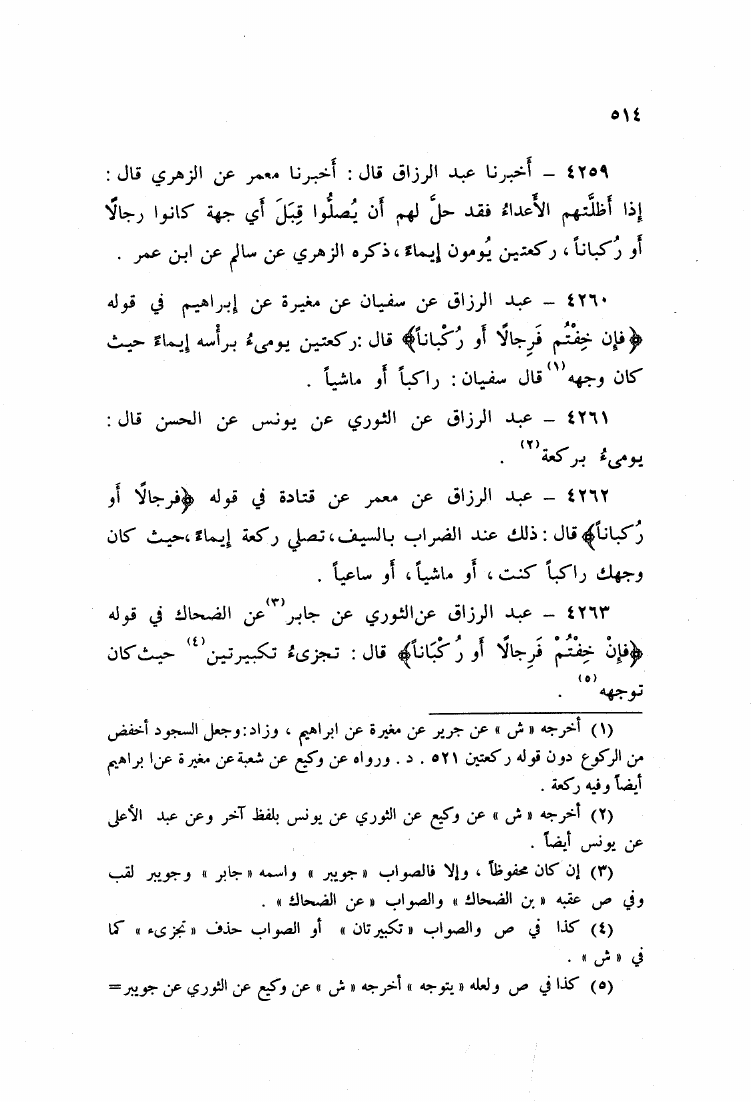 ٥١٤
٤٢٥٩ – أخبرنا عبد الرزاق قال : أخبرنا معمر عن الزهري قال :
إذا أظلَّتهم الأعداءُ فقد حلَّ لهم أن يُصلُّوا قِبَلَ أي جهة كانوا رجالًا
أو رُكباناً ، ركعتين يُومون إيماءً ، ذكره الزهري عن سالم عن ابن عمر .
٤٢٦٠ – عبد الرزاق عن سفيان عن مغيرة عن إبراهيم في قوله
﴿فإن خِفْتُم فَرِجالًا أو رُكْباناً﴾ قال : ركعتين يومىءُ برأسه إيماءً حيث
كان وجهه (١) قال سفيان : راكباً أو ماشياً .
٤٢٦١ – عبد الرزاق عن الثوري عن يونس عن الحسن قال :
يومىءُ بركعة (٢) .
٤٢٦٢ – عبد الرزاق عن معمر عن قتادة في قوله ﴿فرجالًا أو
رُكباناً﴾ قال : ذلك عند الضراب بالسيف ، تصلي ركعة إيماءً ، حيث كان
وجهك راكباً كنت ، أو ماشياً ، أو ساعياً .
٤٢٦٣ – عبد الرزاق عن الثوري عن جابر (٣) عن الضحاك في قوله
﴿فإنْ خِفْتُمْ فَرِجالًا أو رُكْبَاناً﴾ قال : تجزىءُ تكبيرتين (٤) حيث كان
توجهه (٥) .
(١) أخرجه « ش » عن جرير عن مغيرة عن ابراهيم ، وزاد : وجعل السجود أخفض
من الركوع دون قوله ركعتين ٥٢١ . د . ورواه عن وكيع عن شعبة عن مغيرة عن ابراهيم
أيضاً وفيه ركعة .
(٢) أخرجه « ش » عن وكيع عن الثوري عن يونس بلفظ آخر وعن عبد الأعلى
عن يونس أيضاً .
(٣) إن كان محفوظاً ، وإلا فالصواب « جويبر » واسمه « جابر » وجويبر لقب
وفي ص عقبه « بن الضحاك » والصواب « عن الضحاك » .
(٤) كذا في ص والصواب « تكبيرتان » أو الصواب حذف « تجزىء » كما
في « ش » .
(٥) كذا في ص ولعله « يتوجه » أخرجه « ش » عن وكيع عن الثوري عن جويبر =